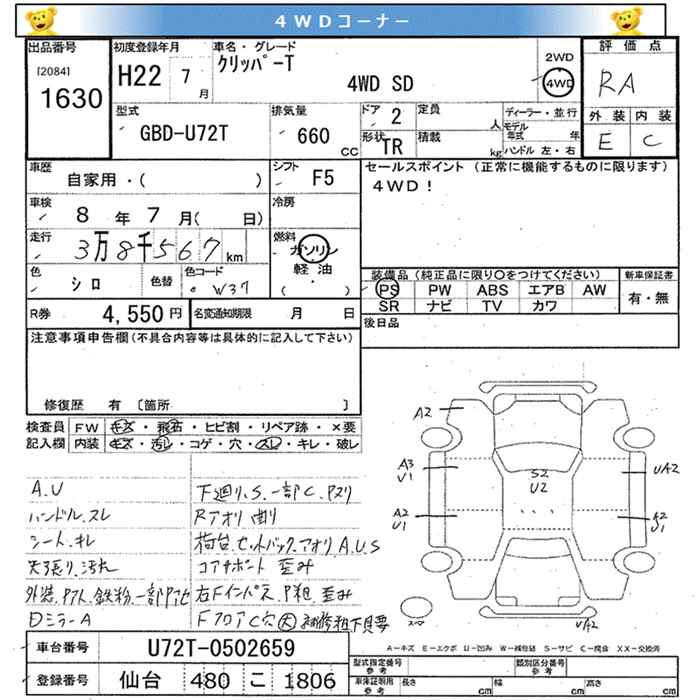 4WDコーナー
出品番号
[2084]
1630
初度登録年月
H22 7 月
車名・グレード
クリッパーT
4WD SD
2WD
4WD
評価点
RA
外装 内装
E C
型式
GBD-U72T
排気量
660 CC
ドア 2
形状 TR
定員 人
積載 kg
ディーラー・並行
モデル年式 年
ハンドル 左・右
車歴
自家用・( )
シフト F5
車検
8 年 7 月( 日)
冷房
走行
3万8千567 km
燃料
ガソリン
軽油
( ・ )
色
シロ
色替
色コード
W37
R券 4,550 円
名変通知期限 月 日
セールスポイント (正常に機能するものに限ります)
4WD!
装備品 (純正品に限り○をつけてください)
PS PW ABS エアB AW
SR ナビ TV カワ
新車保証書
有・無
後日品
注意事項申告欄(不具合内容等は具体的に記入して下さい)
修復歴 有 〔箇所 〕
検査員記入欄
FW キズ・飛石・ヒビ割・リペア跡・×要
内装 キズ・汚レ・コゲ・穴・スレ・キレ・破レ
A.U
ハンドル.スレ
シート.キレ
天張り.汚れ
外装.ヤケ.鉄粉.一部
DミラーA
下廻り.S.一部C.
Rアオリ 曲り
荷台.セットバック.アオリA.U.S
コアサポート 歪み
左Fインパネ.P粗.歪み
FフロアC穴大
A2
A3
U1
A2
U1
S2
U2
UA2
A2
U1
UA2
スマ
A-キズ E-エクボ U-凹み W-補修跡 S-サビ C-腐食 XX-交換済
車台番号 U72T-0502659
登録番号 仙台 480 こ 1806
型式指定番号 参考
類別区分番号 参考
車庫証明用 参考
長さ cm
幅 cm
高さ cm